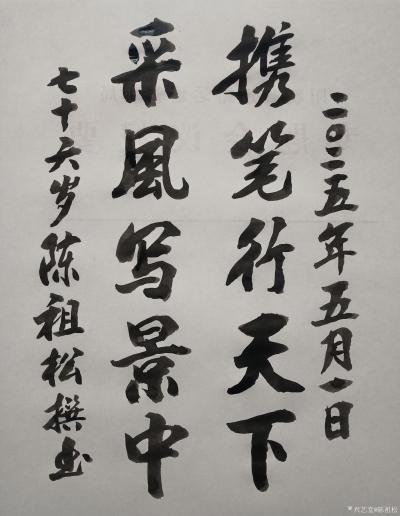 二〇二五年五月一日
携笔行天下
采風写景中
七十六岁陈祖松撰书
兴艺堂@陈祖松